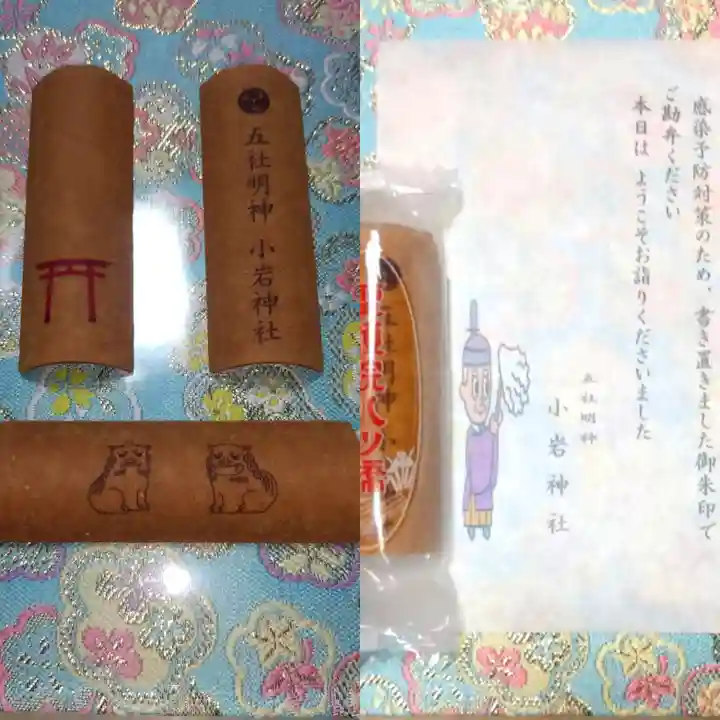 五社明神 小岩神社
感染予防対策のため、書き置きました御朱印で
ご勘弁ください
本日は ようこそお詣りくださいました
五社明神
小岩神社
五社明神 小
聖護院八ツ橋